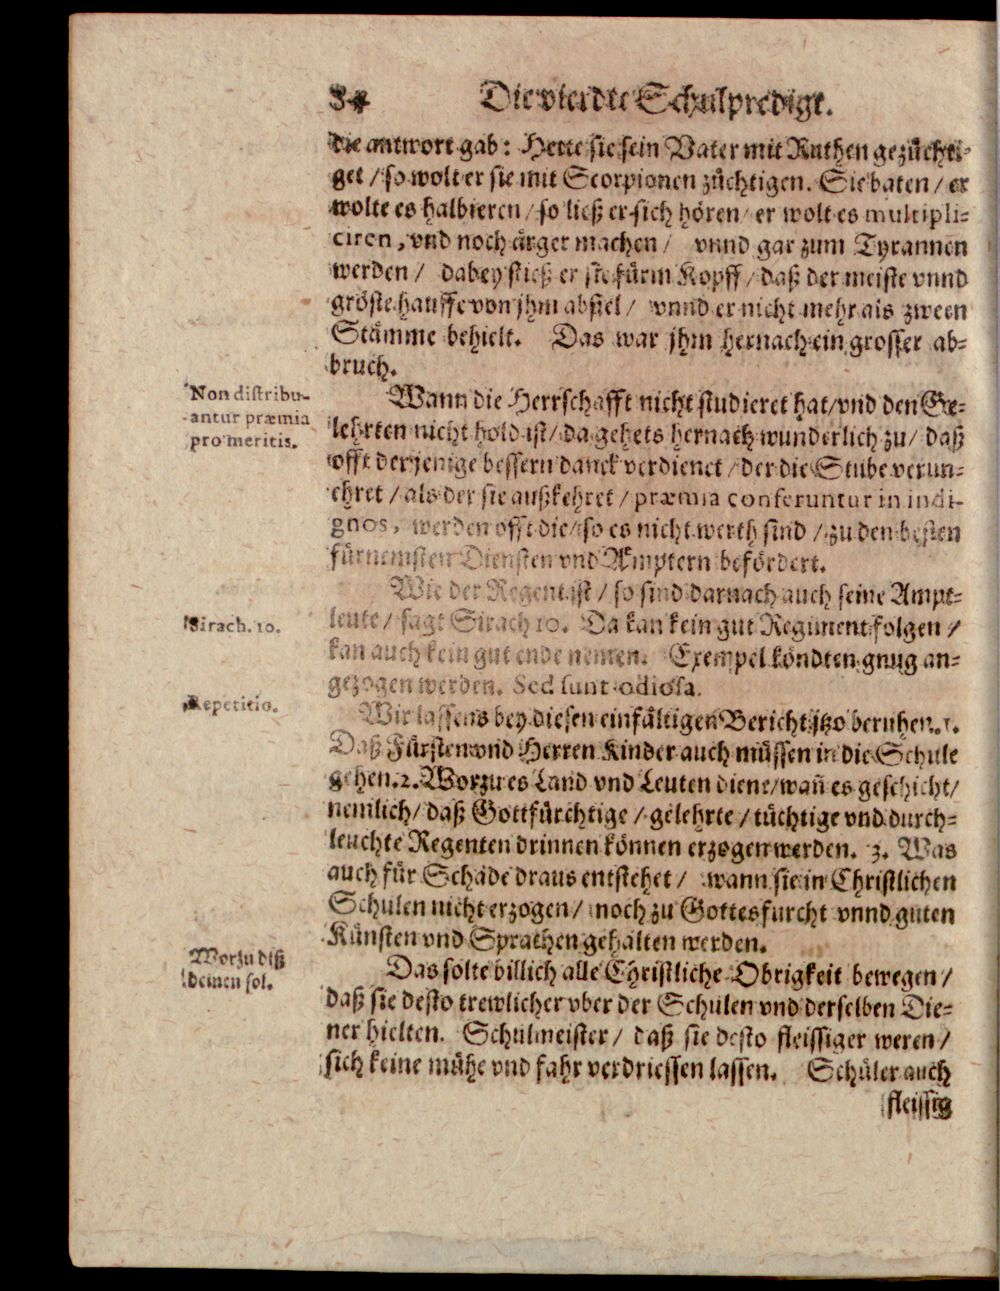 84 Die vierdte Schulpredigt.
die antwort gab: Hette sie sein Vater mit Ruthen gezüchti-
get / so wolt er sie mit Scorpionen züchtigen. Sie baten / er
wolte es halbieren / so ließ er sich hören / er wolt es multipli-
ciren, vnd noch ärger machen / vnnd gar zum Tyrannen
werden / dabey stieß er sie fürm Kopff / daß der meiste vnnd
gröste hauffe von jhm abfiel / vnnd er nicht mehr als zween
Stämme behielt. Das war jhm hernach ein grosser ab-
bruch.
Non distribu-
antur præmia
pro meritis.
Wann die Herrschafft nicht studieret hat / vnd den Ge-
lehrten nicht hold ist / da gehets hernach wunderlich zu / daß
offt derjenige bessern danck verdienet / der die Stube verun-
ehret / als der sie außkehret / præmia conferuntur in indi-
gnos, werden offt die / so es nicht werth sind / zu den besten
fürnemsten Diensten vnd Ämptern befördert.
Wie der Regent ist / so sind darnach auch seine Ampt-
Sirach. 10.
leute / sagt Sirach 10. Da kan kein gut Regiment folgen /
kan auch kein gut ende nemen. Exempel köndten gnug an-
gezogen werden. Sed sunt odiosa.
Repetitio.
Wir lassens bey diesen einfältigen Bericht itzo beruhen. 1.
Daß Fürsten vnd Herren Kinder auch müssen in die Schule
gehen. 2. Worzu es Land vnd Leuten diene / wañ es geschicht /
nemlich / daß Gottfürchtige / gelehrte / tüchtige vnd durch-
leuchte Regenten drinnen können erzogen werden. 3. Was
auch für Schade draus entstehet / wann sie in Christlichen
Schulen nicht erzogen / noch zu Gottesfurcht vnnd guten
Künsten vnd Sprachen gehalten werden.
Worzu diß
deinen sol.
Das solte billich alle Christliche Obrigkeit bewegen /
daß sie desto trewlicher vber der Schulen vnd derselben Die-
ner hielten. Schulmeister / daß sie desto fleissiger weren /
sich keine mühe vnd fahr verdriessen lassen. Schüler auch
fleissig